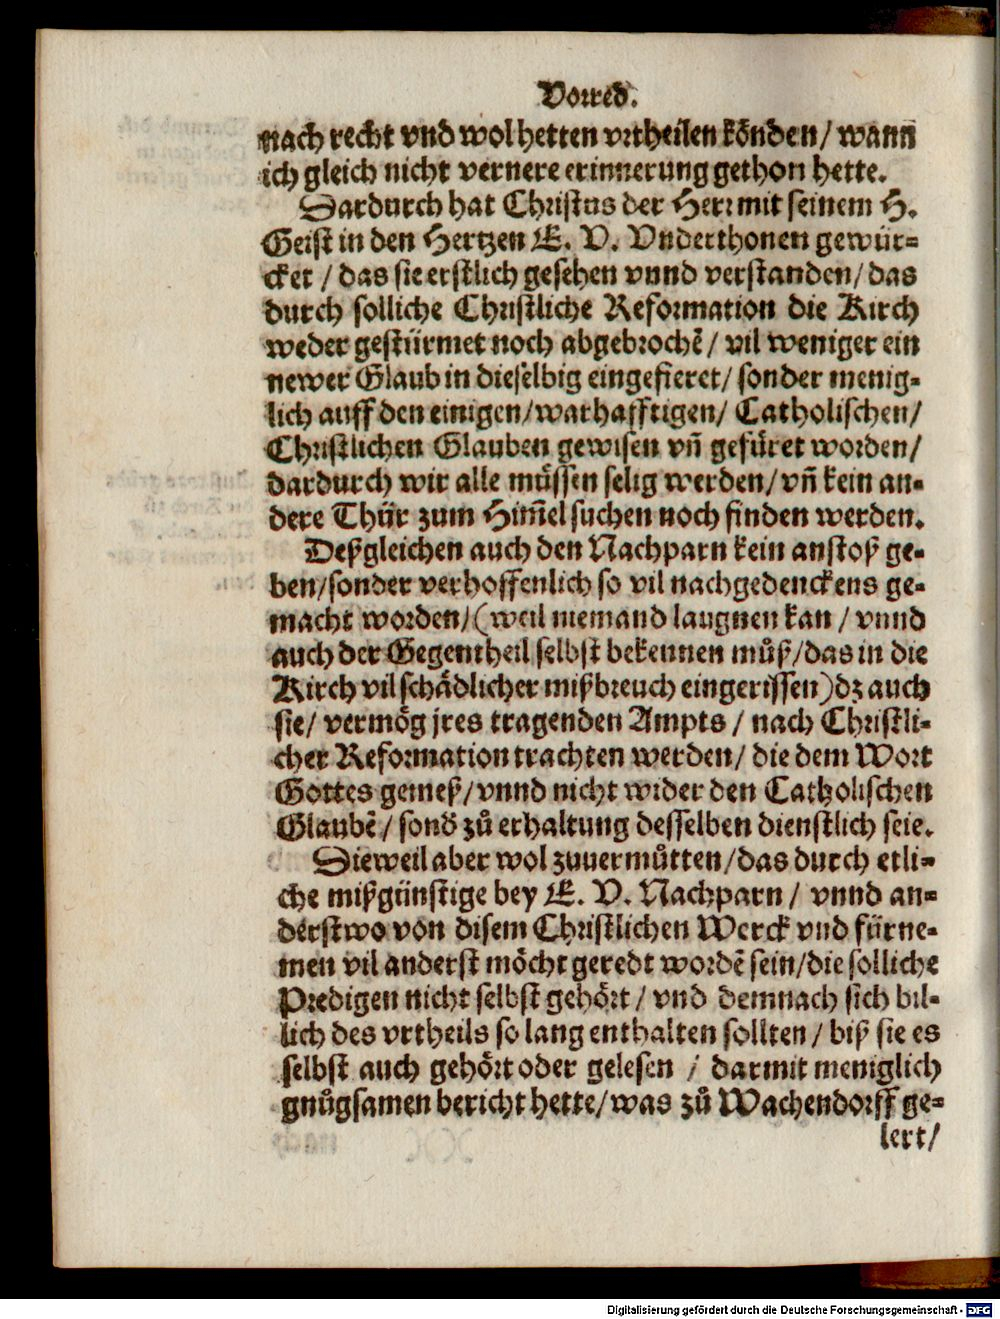 Vorred.
nach recht vnd wol hetten vrtheilen könden/ wann
ich gleich nicht vernere erinnerung gethon hette.
Dardurch hat Christus der Herr mit seinem H.
Geist in den Hertzen E. V. Vnderthonen gewür-
cket / das sie erstlich gesehen vnnd verstanden/ das
durch solliche Christliche Reformation die Kirch
weder gestürmet noch abgebrochẽ / vil weniger ein
newer Glaub in dieselbig eingefieret/ sonder menig-
lich auff den einigen/warhafftigen/ Catholischen/
Christlichen Glauben gewisen vñ gefüret worden/
dardurch wir alle müssen selig werden/ vñ kein an-
dere Thür zum Him̃el suchen noch finden werden.
Deßgleichen auch den Nachparn kein anstoß ge-
ben/sonder verhoffenlich so vil nachgedenckens ge-
macht worden/(weil niemand laugnen kan / vnnd
auch der Gegentheil selbst bekennen můß/das in die
Kirch vil schädlicher mißbreuch eingerissen)dz auch
sie/ vermög jres tragenden Ampts / nach Christli-
cher Reformation trachten werden/ die dem Wort
Gottes gemeß/vnnd nicht wider den Catholischen
Glaubẽ / sond̃ zů erhaltung desselben dienstlich seie.
Dieweil aber wol zuuermůtten/das durch etli-
che mißgünstige bey E. V. Nachparn / vnnd an-
derstwo von disem Christlichen Werck vnd fürne-
men vil anderst möcht geredt wordẽ sein/die solliche
Predigen nicht selbst gehört / vnd demnach sich bil-
lich des vrtheils so lang enthalten sollten / biß sie es
selbst auch gehört oder gelesen / darmit meniglich
gnůgsamen bericht hette/was zů Wachendorff ge-
lert/
Digitalisierung gefördert durch die Deutsche Forschungsgemeinschaft - DFG